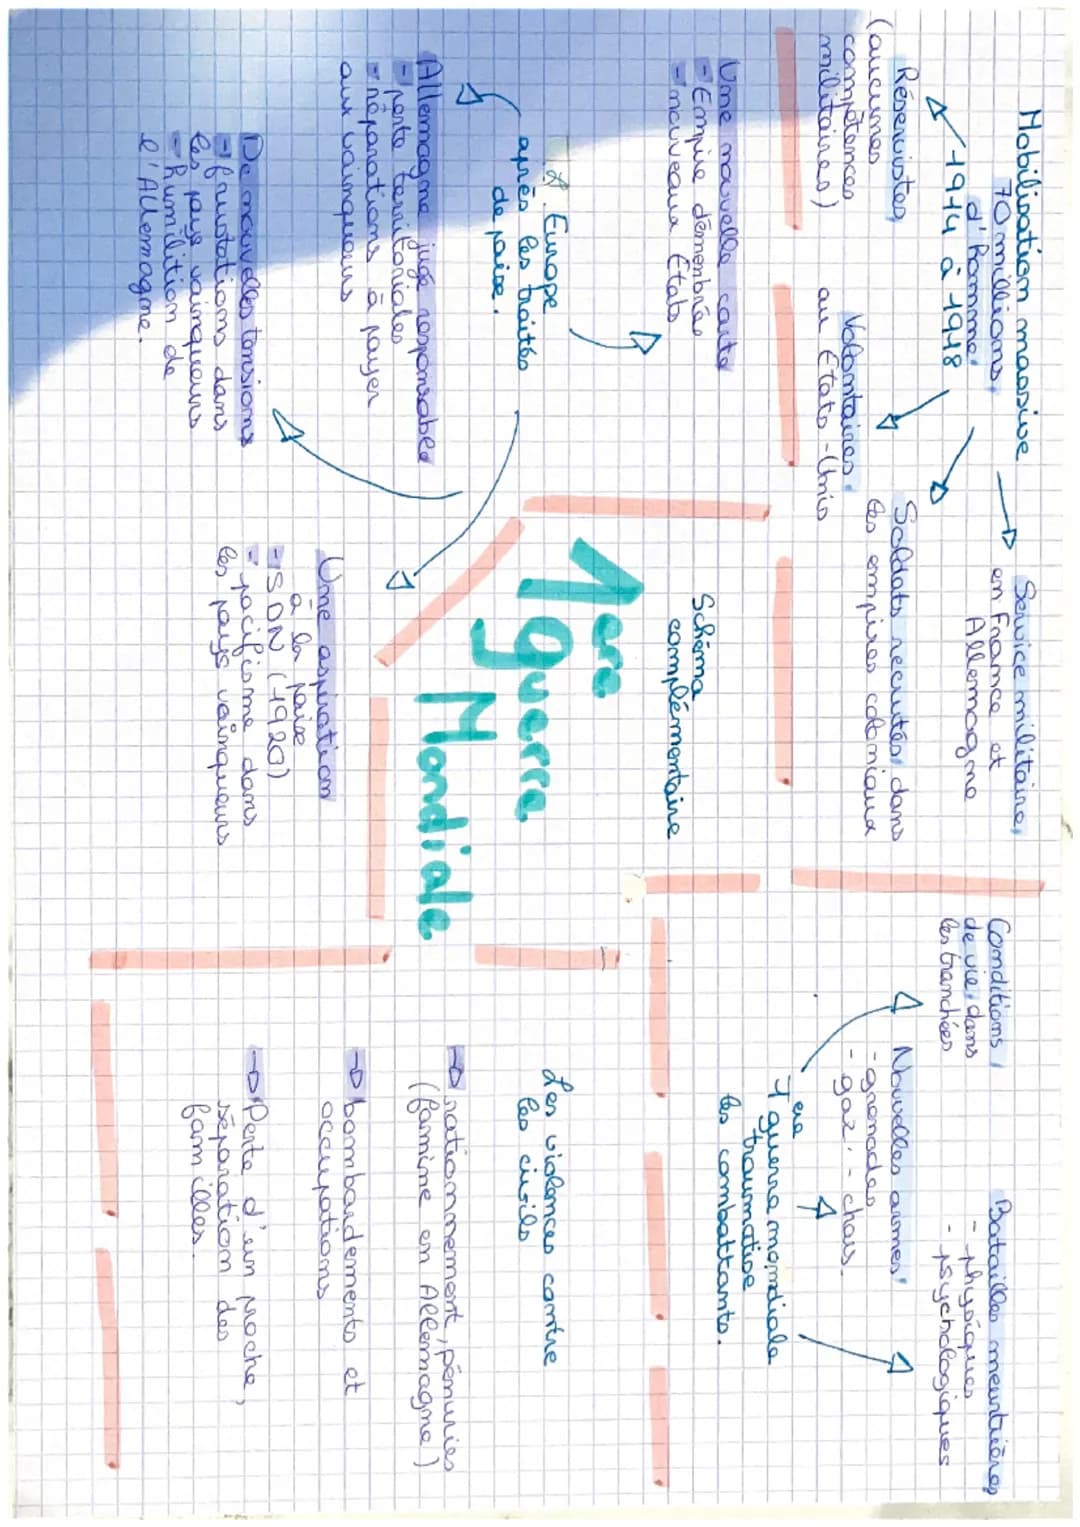 Mobilisation massive
70 millions
d'homme
1914 à 1918
Réservistes
(aucunes
compétences
militaires)
Volontaires
au États-Unis
Soldats recrutés dans
les empires coloniaux
Service militaire
en France et
Allemagne
Conditions
de vie dans
les tranchées
Nouvelles armes
- grenades
- gaz - chars.
Batailles meurtrières
- physiques
- psychologiques
1ere guerre mondiale
traumatise
les combattants.
Schéma
complémentaire
1ere
guerre
Mondiale
L'Europe
après les traités
de paixe.
Une nouvelle carte
- Empire démembrée
- nouveaux États
Allemagne jugé responsable
- perte territoriales
- réparations à payer
aux vainqueurs
De nouvelles tensions
- frustations dans
les pays vainqueurs
- humilition de
l'Allemagne.
Une aspiration
à la paixe
- SDN (1920)
- pacifisme dans
les pays vainqueurs
Les violences contre
les civils
→ rationnnement, pénuries
(famine en Allemagne)
→ bombardements et
occupations
→ Perte d'un proche,
séparation des
familles.